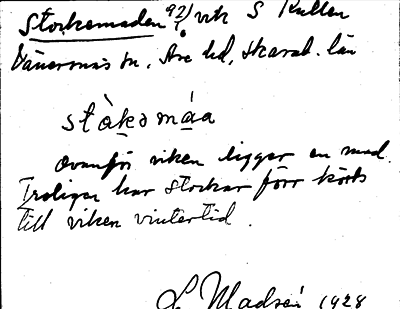 Stockemaden 92/6 vik S Kullen
Vänersnäs sn, Åse hd, Skarab. län
stàkəmáa
Ovanför viken ligger en mad.
Troligen har stockar förr körts
till viken vintertid.
L Madsén 1928